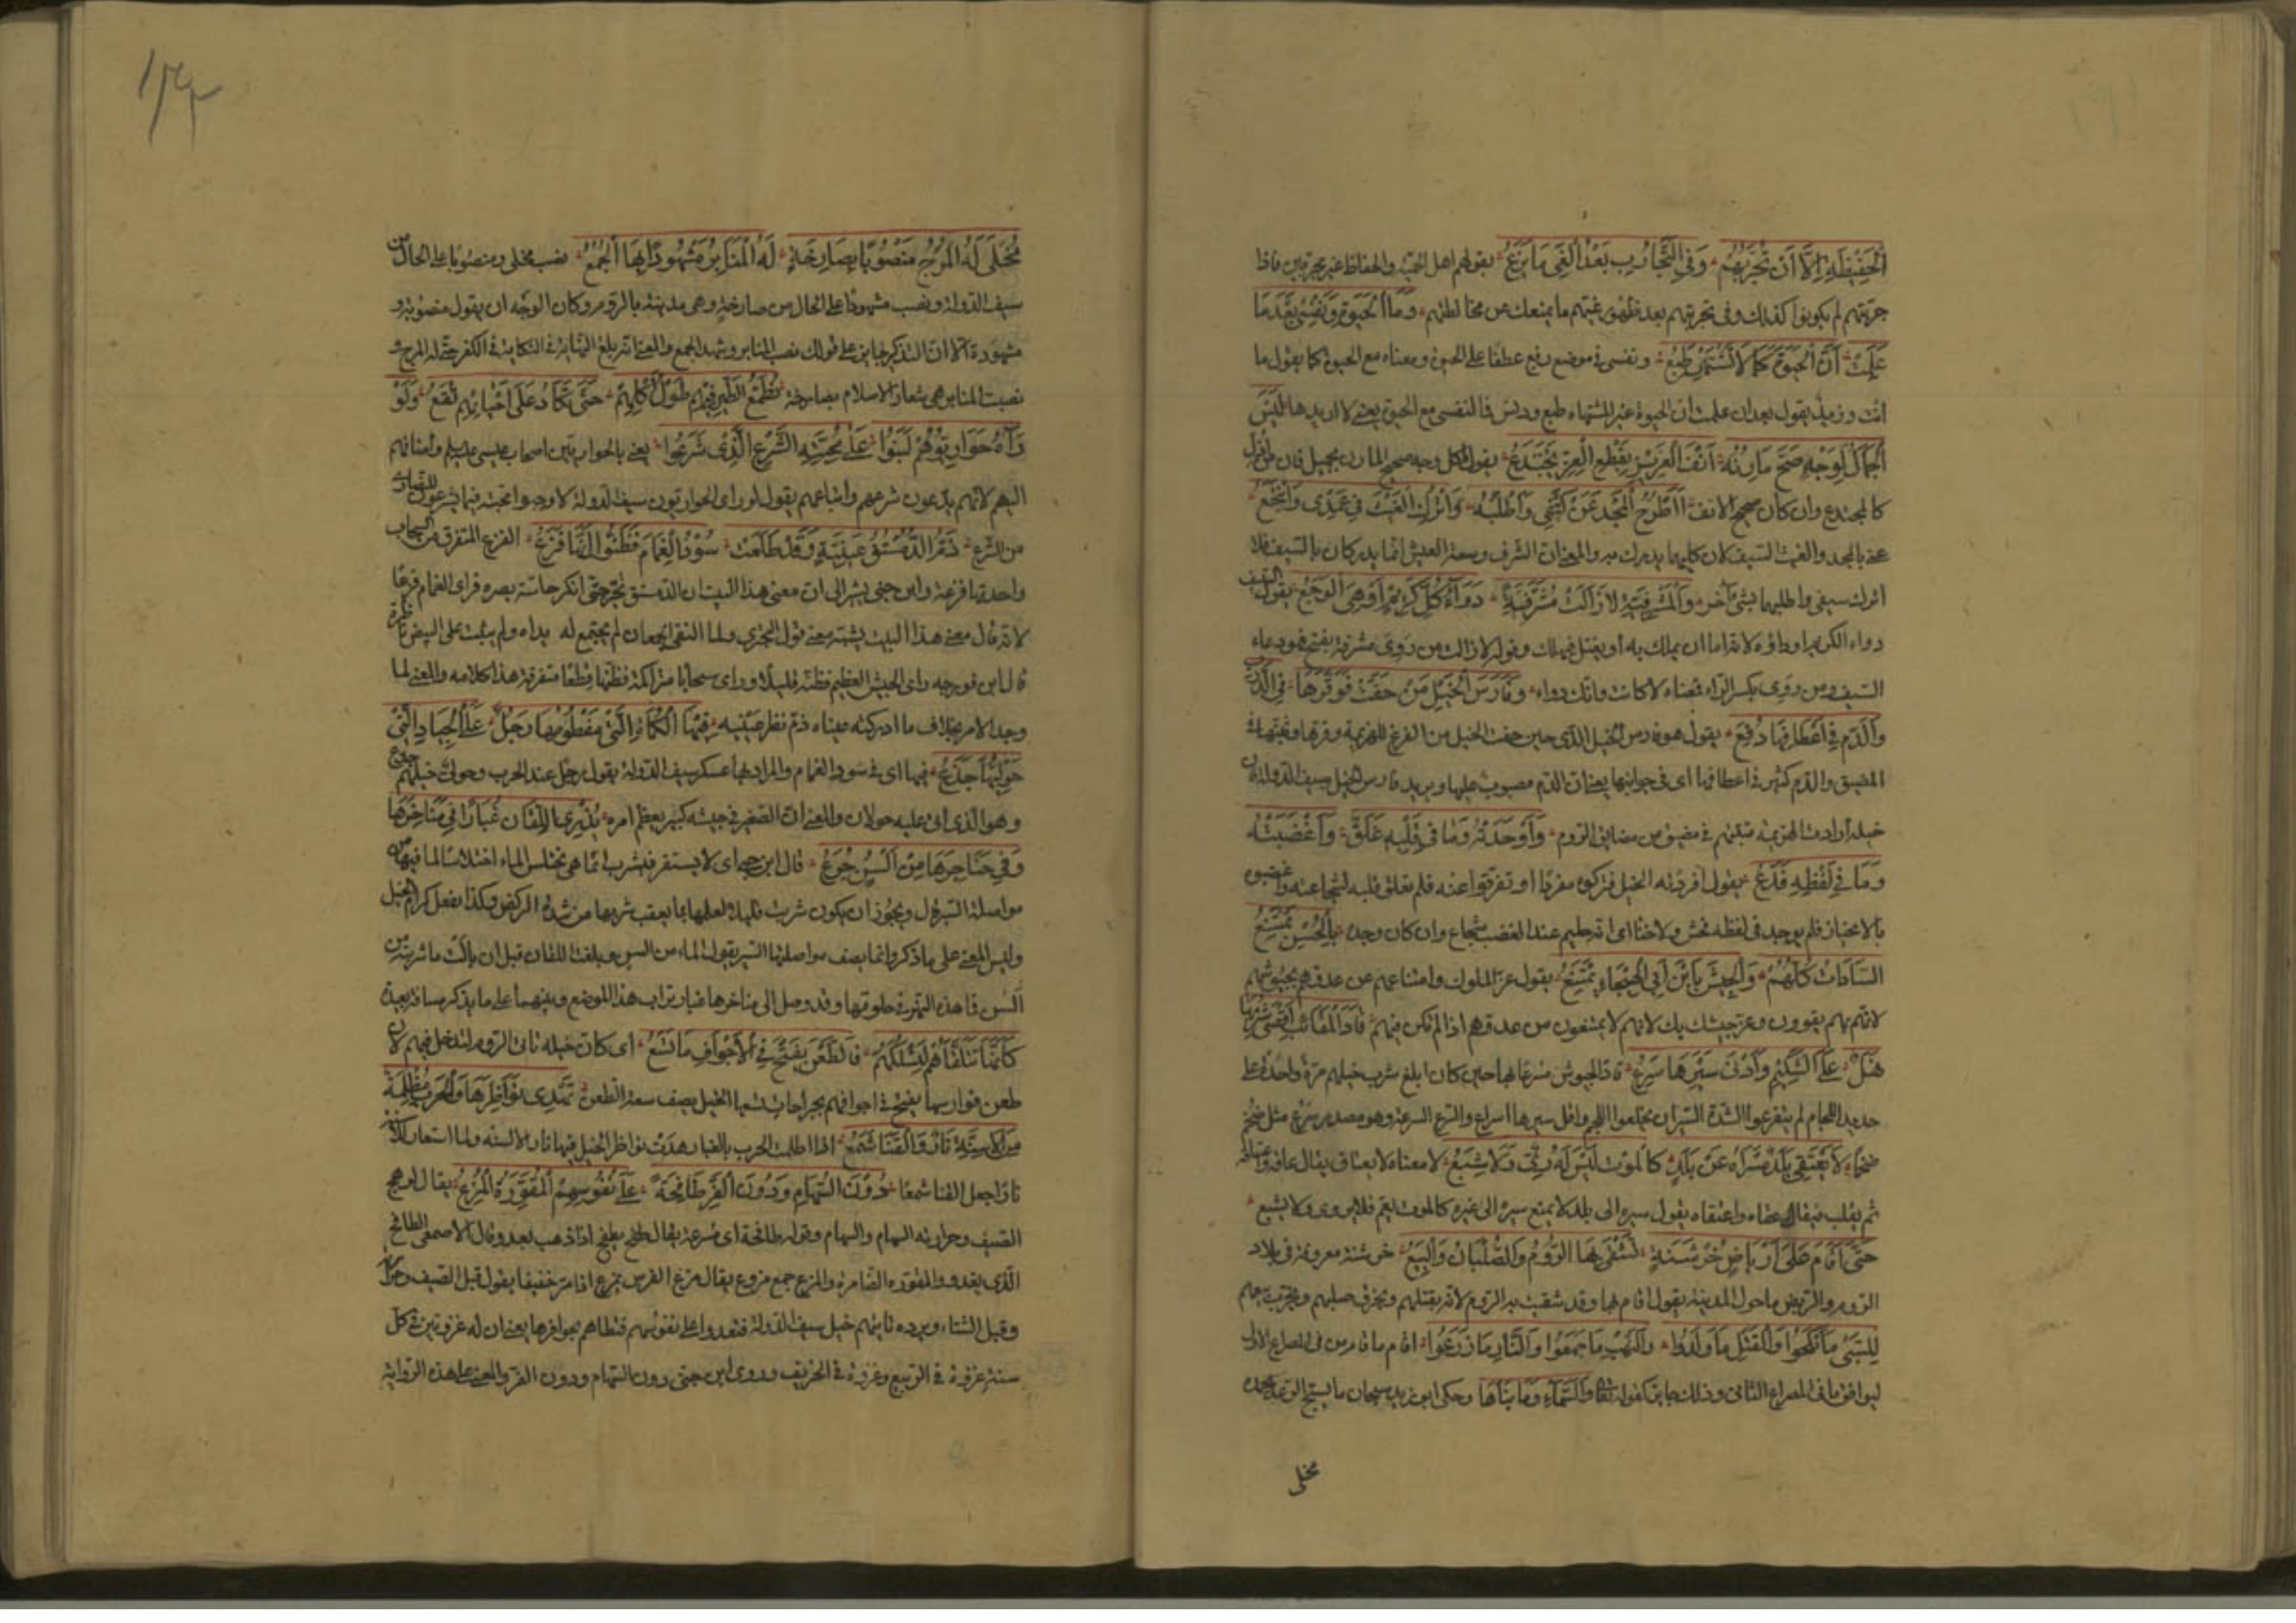 الْحَفِيظَةِ اِلَّا اَنْ تُجَرِّبَهُمْ وَفِي التَّجَارِبِ بَعْدَ الْغَيِّ مَا يَزَعُ يقول هم اهل الحمية والحفاظ غير مجربين فاذا
جربتهم لم يكونوا كذلك وفى تجربتهم بعد ظهور غيهم ما يمنعك من مخالطتهم وَمَا الْحَيٰوةُ وَنَفْسِي بَعْدَ مَا
عَلِمَتْ اَنَّ الْحَيٰوةَ كَمَا لَا تَشْتَهِي طَبَعُ ونفسى فى موضع رفع عطفا على الحيوة ومعناه مع الحيوة كما يقول ما
انت وزيد يقول بعد ان علمت ان الحيوة غير المشتهاء طبع ودنس فالنفسى مع الحيوة يعنى لا اريدها لَيْسَ
الْجَمَالُ لِوَجْهٍ صَحَّ مَارِنُهُ اَنْفُ الْعَزِيزِ بِقَطْعِ الْعِزِّ يُجْتَدَعُ يقول ليس كل وجه صحيح المارن بجميل فان من اذل
كالمجتدع وان كان صحيح الانف أَأَطْرَحُ الْمَجْدَ عَنْ كَتِفِي وَاَطْلُبُهُ وَاَتْرُكُ الْغَيْثَ فِي غِمْدِي وَاَنْتَجِعُ
عنى بالمجد والغيث السيف لان كليهما يدرك به والمعنى ان الشرف وسعة العيش انما يدركان بالسيف فلا
اترك سيفى واطلبهما بشئ آخر وَالْمَشْرَفِيَّةُ لَا زَالَتْ مُشَرَّفَةً دَوَاءُ كُلِّ كَرِيمٍ اَوْ هِيَ الْوَجَعُ يقول السيف
دواء الكريم او داؤه لانه اما ان يملك به أو يقتل فيهلك وقوله لا زالت من روى مشرفة بفتح فهو دعاء
السيف ومن روى بكسر الراء فمعناه لا كانت دواء وَفَارِسُ الْخَيْلِ مَنْ خَفَّتْ فَوَقَّرَهَا فِي الدَّرْبِ
وَالدَّمُ فِي اَعْطَافِهَا دُفَعُ يقول هو فارس الخيل الذى حين خفت الخيل من الفزع للهزيمة وقرها وثبتها فى
المضيق والدم كثير فى اعطافها اى فى جوانبها يعنى ان الدم مصبوب عليها ويريد فارس الخيل سيف الدولة لان
خيله أرادت الهزيمة فثبتهم فى مضيق من مضايق الروم وَاَوْحَدَتْهُ وَمَا فِي قَلْبِهِ قَلَقٌ وَاَغْضَبَتْهُ
وَمَا فِي لَفْظِهِ قَذَعُ يقول افردته الخيل فتركوه مفردا او تفرقوا عنه فلم يقلق قلبه لشجاعته واغضبوه
فلم يوجد فى لفظه فحش ولا خنا اى انه حليم عند الغضب شجاع وان كان وحده بِالْجَيْشِ تَمْتَنِعُ
السَّادَاتُ كُلُّهُمُ وَالْجَيْشُ بِابْنِ اَبِي الْهَيْجَاءِ يَمْتَنِعُ يقول عز الملوك وامتناعهم من عدوهم بجيوشهم
لانهم بهم يقوون وعز جيشك بك لانهم لا يمتنعون من عدوهم اذا لم تكن فيهم قَادَ الْمَقَانِبَ اَقْصَى شُرْبِهَا
نَهَلٌ عَلَى الشَّكِيمِ وَاَدْنَى سَيْرِهَا سَرَعُ قاد الجيوش مسرعا بها حين كان ابلغ شرب خيلهم مرة واحدة على
حديد اللجام لم يتفرغوا لشدة السير ان يخلعوا اللجم واقل سيرها اسراع والسرع السرعة وهو مصدر سرع مثل ضخم
ضخما لَا يَعْتَقِي بَلَدٌ مَسْرَاهُ عَنْ بَلَدٍ كَالْمَوْتِ لَيْسَ لَهُ رِيٌّ وَلَا شِبَعُ لا معناه لا يعتاق يقال عاقه واعتاقه
ثم يقلب فيقال عقاه واعتقاه يقول سيره الى بلد لا يمنع سيره الى غيره كالموت يعم فلا يروى ولا يشبع
حَتّٰى اَقَامَ عَلَى اَرْبَاضِ خَرْشَنَةٍ تَشْقَى بِهَا الرُّومُ وَالصُّلْبَانُ وَالْبِيَعُ خرشنة معروفة فى بلاد
الروم والربض ما حول المدينة يقول اقام بها وقد شقيت به الروم لانه يقتلهم ويحرق صليبهم ويخرب بيعهم
لِلسَّبْيِ مَا نَكَحُوا وَالْقَتْلِ مَا وَلَدُوا وَالنَّهْبِ مَا جَمَعُوا وَالنَّارِ مَا زَرَعُوا اقام ما مقام من فى المصراع الاول
ليوافق ما فى المصراع الثانى وذلك جايز كقوله تعالى والسَّمَاءِ وَمَا بَنَاهَا وحكى ابو زيد سبحان ما يسبح الرعد بحمده
مخلى
١٣٢
مُخْلًى لَهُ الْمَرْجُ مَنْصُوبًا بِصَارِخَةٍ لَهُ الْمَنَابِرُ مَشْهُودًا بِهَا الْجُمَعُ نصب مخلى ومنصوبا على الحال من
سيف الدولة ونصب مشهودا على الحال من صارخة وهى مدينة بالروم وكان الوجه ان يقول منصوبة و
مشهودة الا ان التذكير جايز على قولك نصب المنابر وشهد الجمع والمعنى انه بلغ النهاية فى النكاية فى الكفر حتى له المرج و
نصبت المنابر هى شعار الاسلام بصارخة يُطَمِّعُ الطَّيْرَ فِيهِمْ طُولُ اَكْلِهِمُ حَتّٰى تَكَادُ عَلَى اَحْيَائِهِمْ تَقَعُ وَلَوْ
رَآهُ حَوَارِيُّوهُمُ لَبَنَوْا عَلَى مَحَبَّتِهِ الشَّرْعَ الَّذِي شَرَعُوا يعنى بالحواريين اصحاب عيسى عليه السلم واضافهم
اليهم لانهم يدعون شرعهم واتباعهم يقول لو راى الحواريون سيف الدولة لاوجبوا محبته فيما يشرعون للنصارى
من الشرع ذَمَّ الدُّمُسْتُقُ عَيْنَيْهِ وَقَدْ طَلَعَتْ سُودُ الْغَمَامِ فَظَنُّوا اَنَّهَا قَزَعُ القزع المتفرق من السحاب
واحدتها قزعة وابن جنى يشير الى ان معنى هذا البيت ان الدمستق تحير حتى انكر حاسة بصره فراى الغمام قزعا
لانه قال معنى هذا البيت يشبه معنى قول البحترى ولما التقى الجمعان لم تجتمع له يداه ولم يثبت على البيض ناظره
قال ابن فورجه راى الجيش العظيم فظنه قليلا وراى سحابا متراكمة فظنها قطعا متفرقة هذا كلامه والمعنى لما
وجد الامر بخلاف ما ادركته عيناه ذم نظر عينيه فِيهَا الْكُمَاةُ الَّتِي مَفْطُومُهَا رَجُلٌ عَلَى الْجِيَادِ الَّتِي
حَوْلِيُّهَا جَذَعُ فيها اى فى سود الغمام والمراد بها عسكر سيف الدولة يقول رجل عند الحرب وحولى خيلهم جذع
وهو الذى اتى عليه حولان والمعنى ان الصغير فى جيشه كبير يعظم امره يُذْرِي اللُّقَانُ غُبَارًا فِي مَنَاخِرِهَا
وَفِي حَنَاجِرِهَا مِنْ آلِسٍ جُرَعُ قال ابن جنى اى لا يستقر فتشرب انما هى تختلس الماء اختلاسا لما فيها من
مواصلة السير قال ويجوز ان يكون شربت قليلا لعلمها بما يعقب شربها من شدة الركض وكذا يفعل كرام الخيل
وليس المعنى على ما ذكر وانما يصف مواصلتها السير يقول الماء من السر وبلغت اللقان قبل ان بلعت ما شربته من
آلس فماء هذا النهر فى حلوقها وقد وصل الى مناخرها غبار تراب هذا الموضع وبينهما على ما يذكر مسافة بعيدة
كَاَنَّمَا تَتَلَقَّاهُمْ لِتَسْلُكَهُمْ فَالطَّعْنُ يَفْتَحُ فِي الْاَجْوَافِ مَا تَسَعُ اى كان خيله تاتى الروم لتدخل فيهم لان
طعن فوارسها يفتح فى اجوافهم جراحات تسعها الخيل يصف سعة الطعن تَهْدِي نَوَاظِرَهَا وَالْحَرْبُ مُظْلِمَةٌ
مِنَ الْاَسِنَّةِ نَارٌ وَالْقَنَا شَمَعُ اذا اظلمت الحرب بالغبار هدت نواظر الخيل فيها نار الاسنة ولما استعار للاسنة
نارا جعل القنا شمعا دُونَ السَّهَامِ وَدُونَ الْقُرِّ طَافِحَةً عَلَى نُفُوسِهِمُ الْمُقْوَرَّةُ الْمُزُعُ يقال لوهج
الصيف وحرارته السهام والسهام وقوله طافحة اى مسرعة يقال طفح يطفح اذا ذهب يعدو وقال الاصمعى الطافح
الذى يعدو والمقورة الضامرة والمزع جمع مزوع يقال مزع الفرس يمزع اذا مر خفيفا يقول قبل الصيف وحره
وقبل الشتاء وبرده تاتيهم خيل سيف الدولة فتعدوا على نفوسهم فتطاهم بحوافرها يعنى ان له غزوتين فى كل
سنة غزوة فى الربيع وغزوة فى الخريف وروى ابن جنى دون السهام ودون الفر والمعنى على هذه الرواية